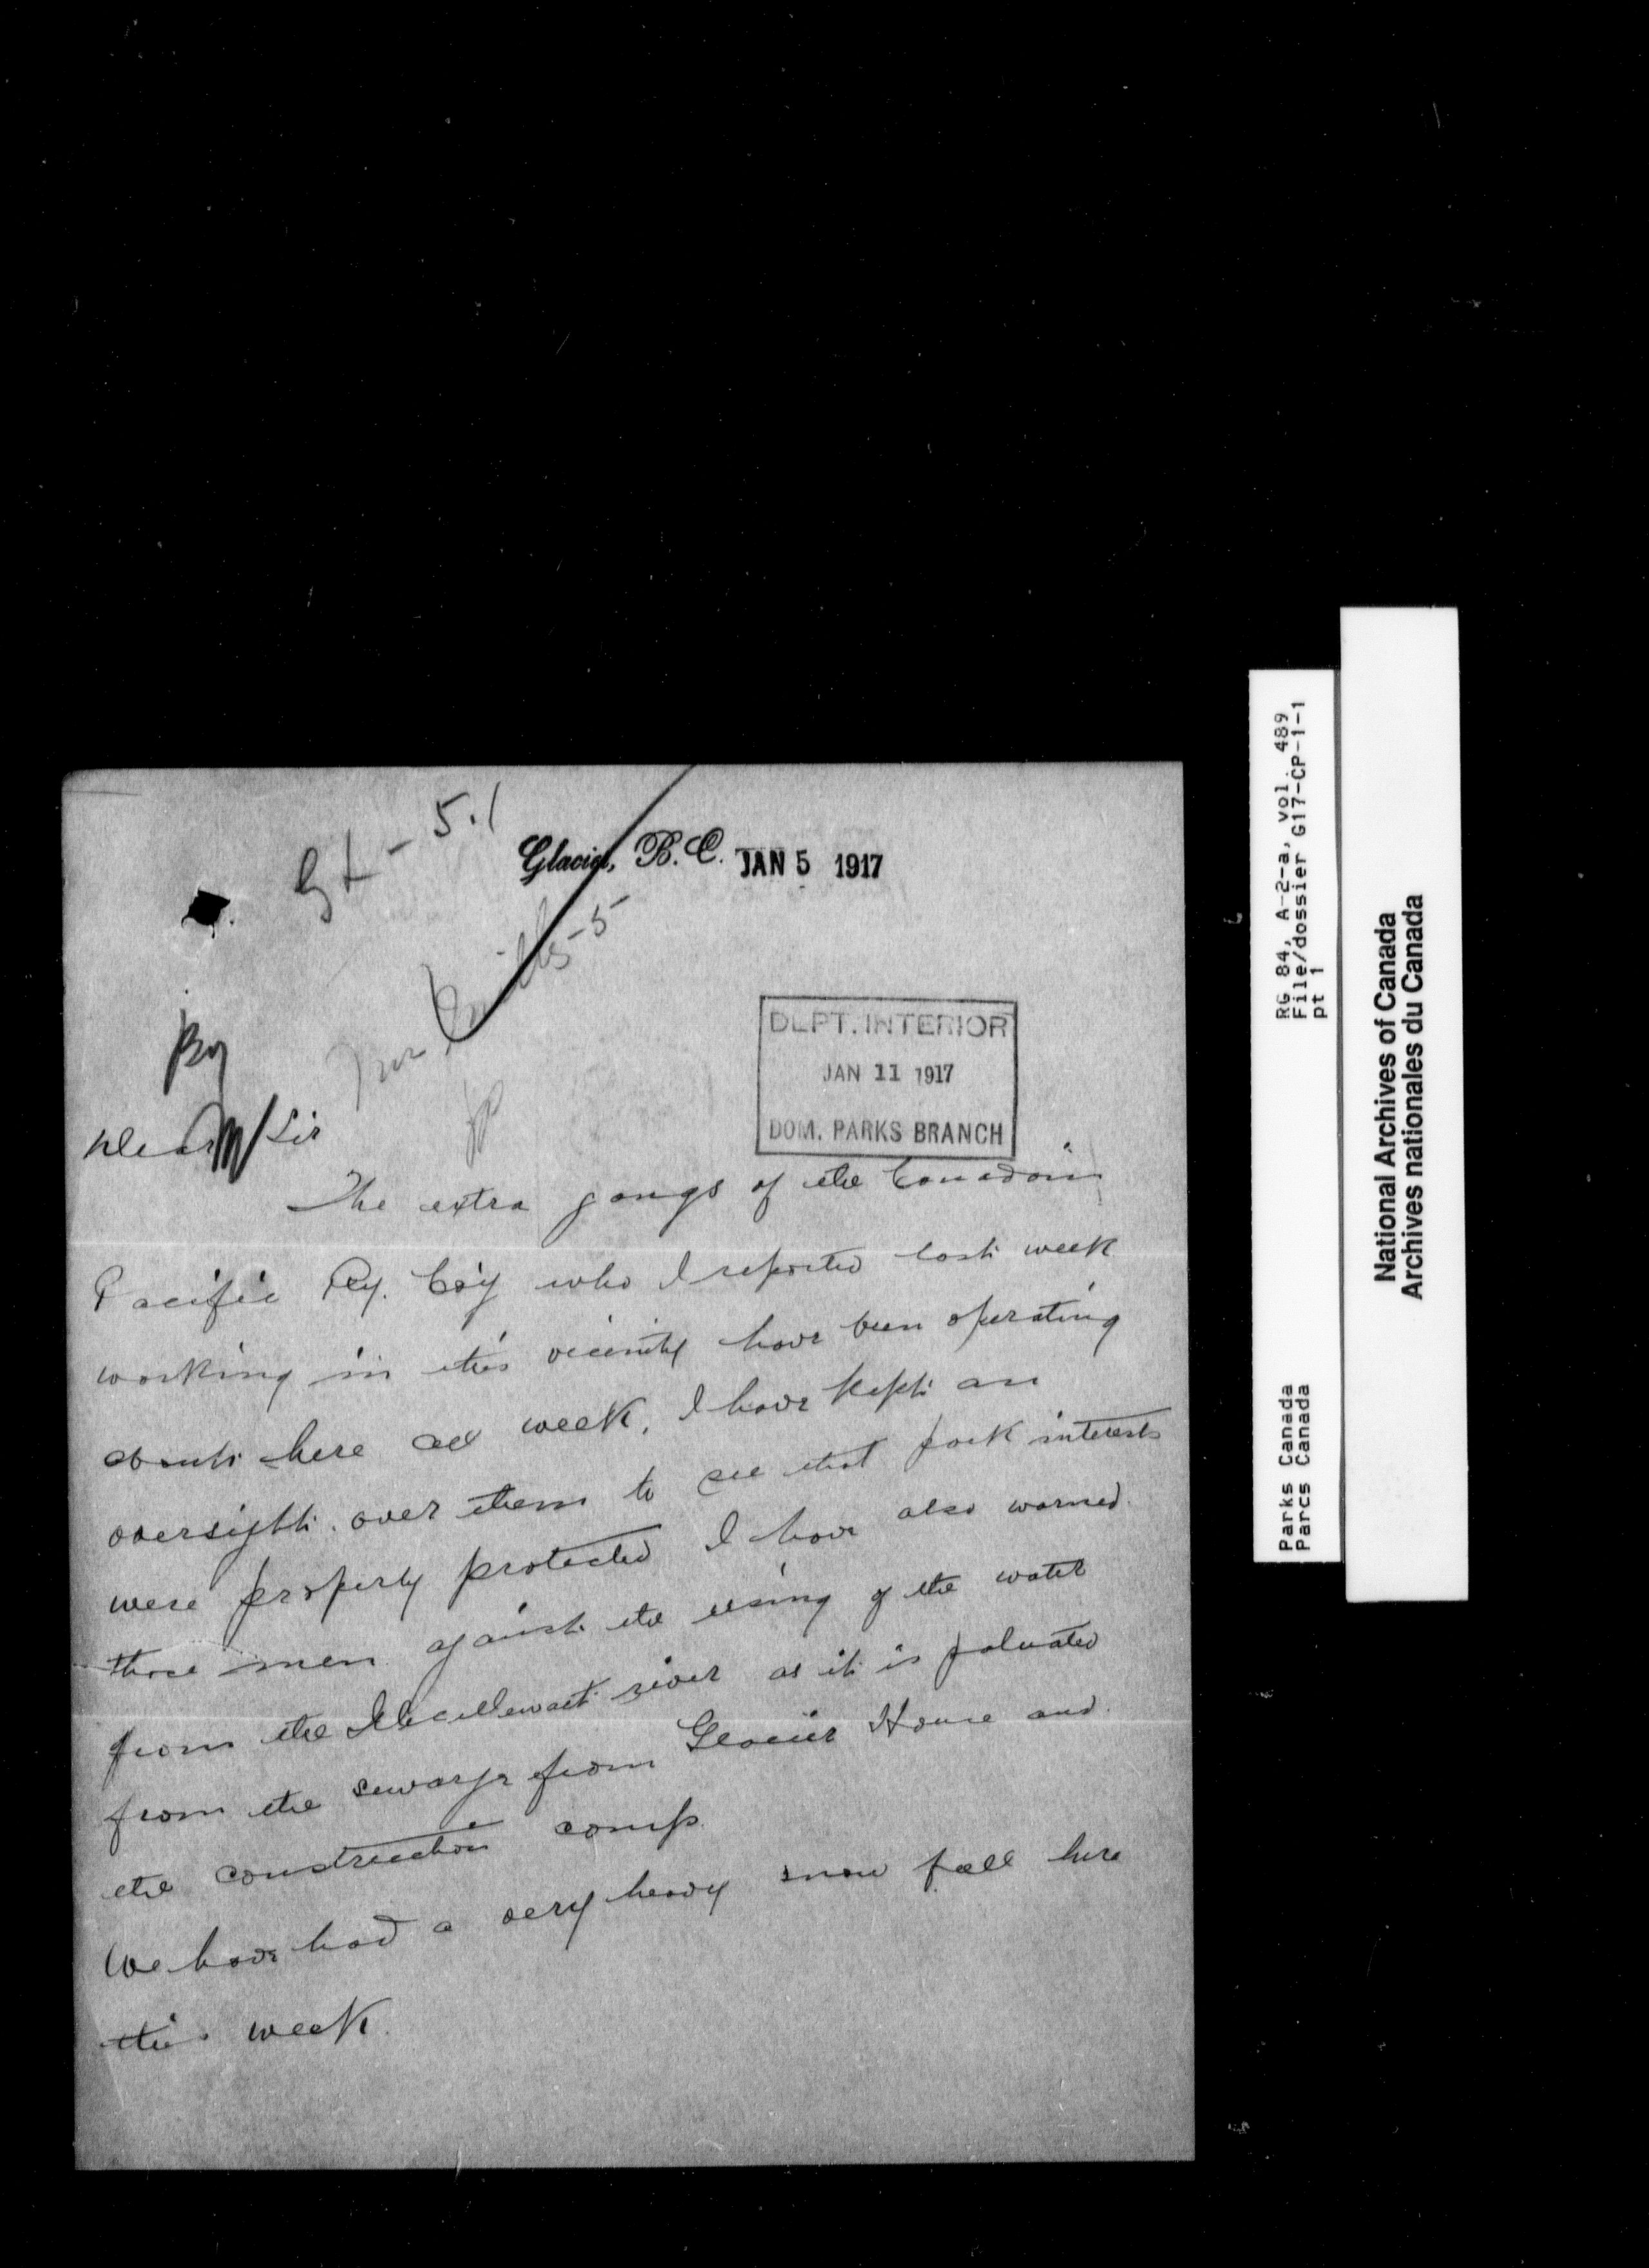 Gt - 5.1
Glacier, B.C. JAN 5 1917
DEPT. INTERIOR
JAN 11 1917
DOM. PARKS BRANCH
Dear Sir
The extra gangs of the Canadain
Pacific Ry. Co'y who I reported last week
working in this vicinity have been operating
about here all week. I have kept an
oversight over them to see that park interests
were properly protected I have also warned
those men against the using of the water
from the Illecillewaet river as it is poluated
from the sewarge from Glacier House and
the construction camp.
We have had a very heavy snow fall here
this week.
RG 84, A-2-a, vol. 489
File/dossier G17-CP-1-1
pt 1
Parks Canada
Parcs Canada
National Archives of Canada
Archives nationales du Canada